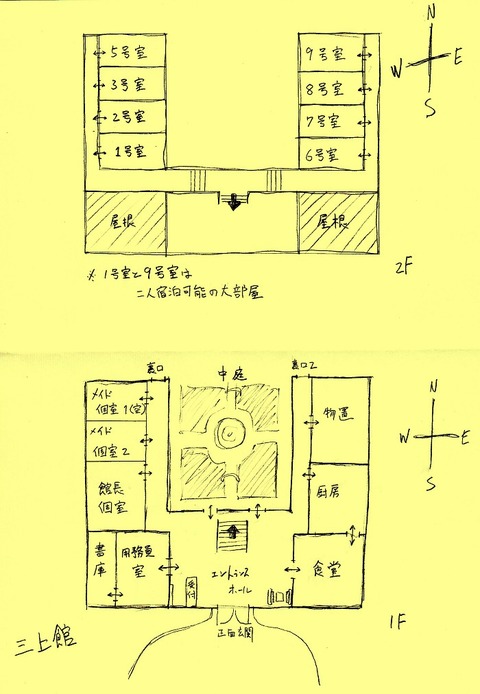 N
W E
S
5号室
3号室
2号室
1号室
9号室
8号室
7号室
6号室
屋根
屋根
2F
※ 1号室と9号室は
二人宿泊可能の大部屋
裏口
中庭
裏口2
メイド
個室1(空)
メイド
個室2
館長
個室
書庫
用務員室
物置
厨房
食堂
エントランス
ホール
受付
正面玄関
N
W E
S
1F
三上館